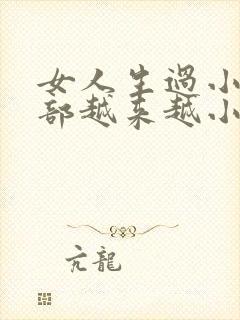 女人生過小
部越来越小
亢龍